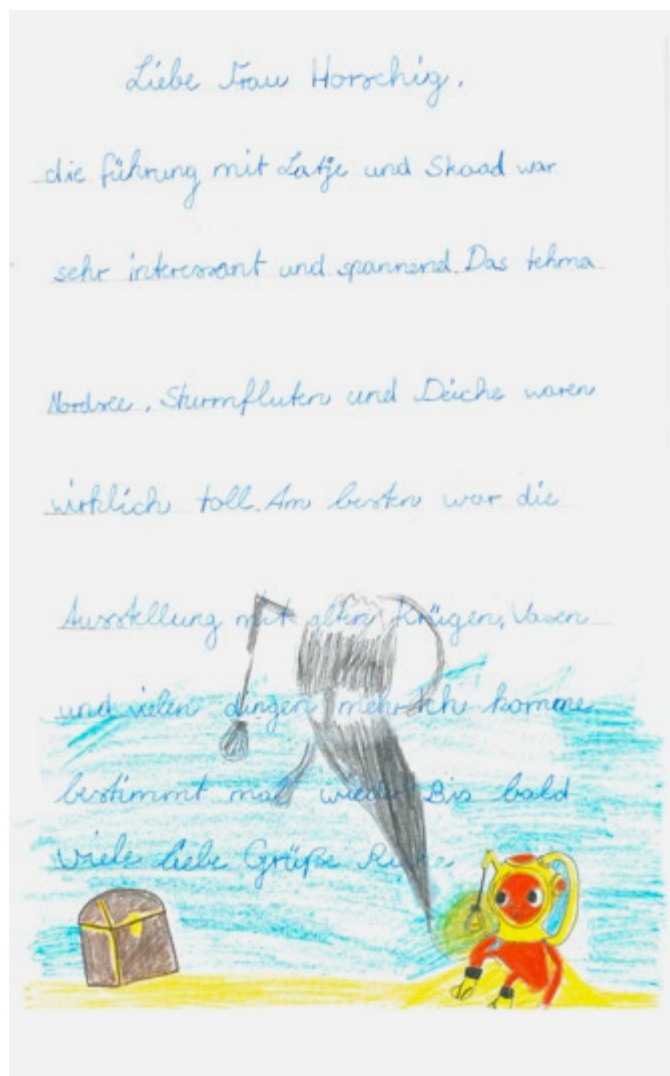 Liebe Frau Horschig,
die führung mit Latje und Skaad war
sehr interessant und spannend. Das tehma
Nordsee, Sturmfluten und Deiche waren
wirklich toll. Am besten war die
Ausstellung mit alten Krügen, Vasen
und vielen dingen mehr. Ich komme
bestimmt mal wieder! Bis bald
viele liebe Grüße